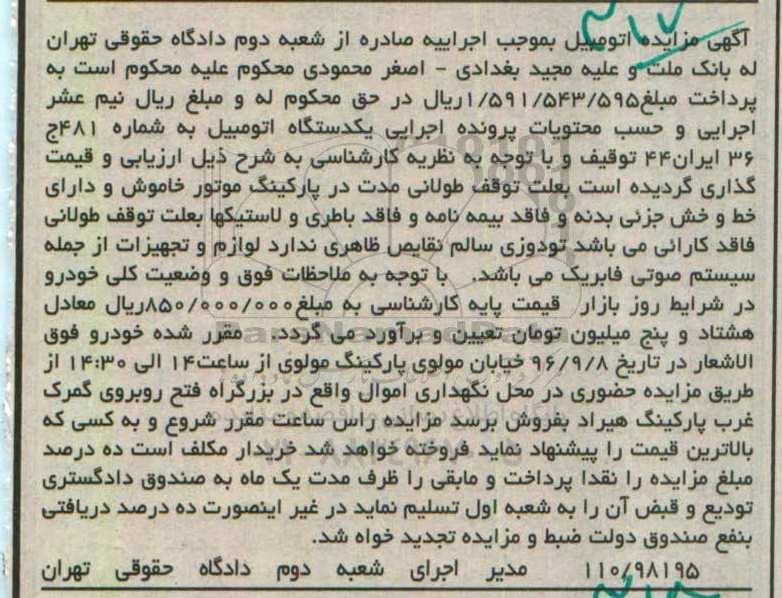 آگهی مزایده اتومبیل بموجب اجراییه صادره از شعبه دوم دادگاه حقوقی تهران
له بانک ملت و علیه مجید بغدادی - اصغر محمودی محکوم علیه محکوم است به
پرداخت مبلغ۱/۵۹۱/۵۴۳/۵۹۵ریال در حق محکوم له و مبلغ ریال نیم عشر
اجرایی و حسب محتویات پرونده اجرایی یکدستگاه اتومبیل به شماره ۴۸۱ج
۳۶ ایران۴۴ توقیف و با توجه به نظریه کارشناسی به شرح ذیل ارزیابی و قیمت
گذاری گردیده است بعلت توقف طولانی مدت در پارکینگ موتور خاموش و دارای
خط و خش جزئی بدنه و فاقد بیمه نامه و فاقد باطری و لاستیکها بعلت توقف طولانی
فاقد کارائی می باشد تودوزی سالم نقایص ظاهری ندارد لوازم و تجهیزات از جمله
سیستم صوتی فابریک می باشد. با توجه به ملاحظات فوق و وضعیت کلی خودرو
در شرایط روز بازار قیمت پایه کارشناسی به مبلغ۸۵۰/۰۰۰/۰۰۰ریال معادل
هشتاد و پنج میلیون تومان تعیین و برآورد می گردد. مقرر شده خودرو فوق
الاشعار در تاریخ ۹۶/۹/۸ خیابان مولوی پارکینگ مولوی از ساعت۱۴ الی ۱۴:۳۰ از
طریق مزایده حضوری در محل نگهداری اموال واقع در بزرگراه فتح روبروی گمرک
غرب پارکینگ هیراد بفروش برسد مزایده راس ساعت مقرر شروع و به کسی که
بالاترین قیمت را پیشنهاد نماید فروخته خواهد شد خریدار مکلف است ده درصد
مبلغ مزایده را نقدا پرداخت و مابقی را ظرف مدت یک ماه به صندوق دادگستری
تودیع و قبض آن را به شعبه اول تسلیم نماید در غیر اینصورت ده درصد دریافتی
بنفع صندوق دولت ضبط و مزایده تجدید خواه شد.
۱۱۰/۹۸۱۹۵ مدیر اجرای شعبه دوم دادگاه حقوقی تهران